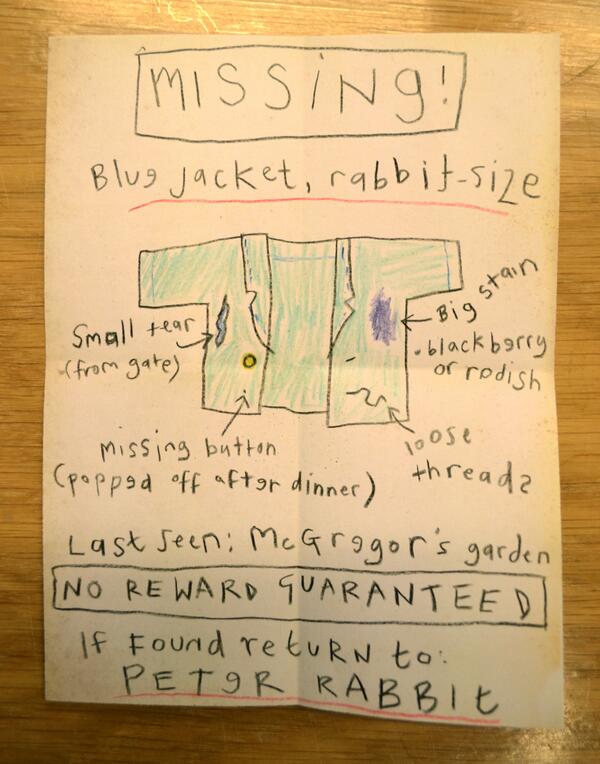 MISSING!
Blue jacket, rabbit-size
Small tear
(from gate)
Big stain
blackberry
or radish
missing button
(popped off after dinner)
loose
threads
Last seen: McGregor's garden
NO REWARD GUARANTEED
If Found return to:
PETER RABBIt